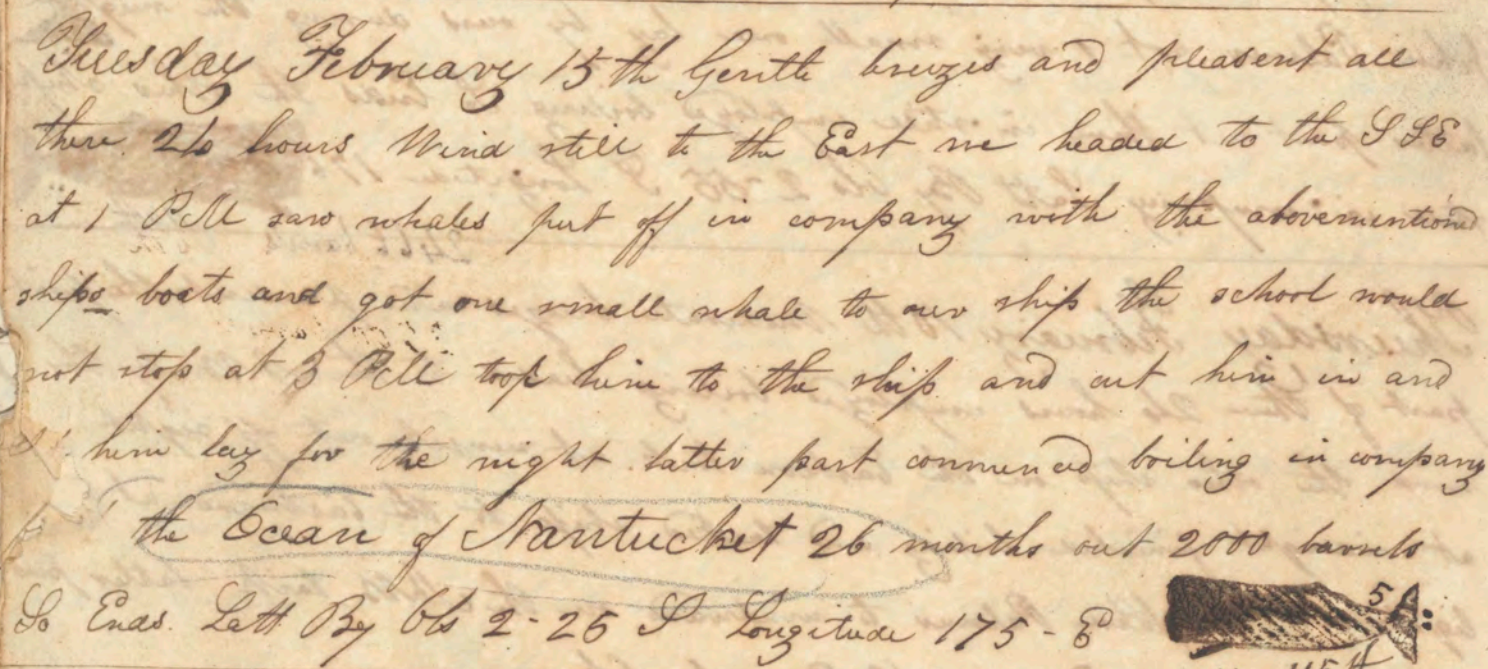 Tuesday February 15th Gentle breezes and pleasent all
these 24 hours Wind still to the East we headed to the SSE
at 1 PM saw whales put off in company with the abovementioned
ships boats and got one small whale to our ship the school would
not stop at 3 PM took him to the ship and cut him in and
him lay for the night latter part commenced boiling in company
the Ocean of Nantucket 26 months out 2000 barrels
So Ends. Latt By Obs 2-25 S Longitude 175-E
5